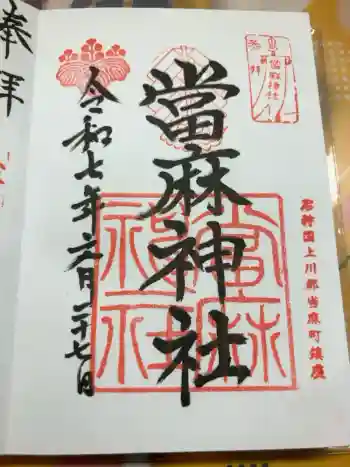 石狩国上川郡当麻町鎮座
當麻神社
當麻神社
令和七年六月二十七日
奉拝